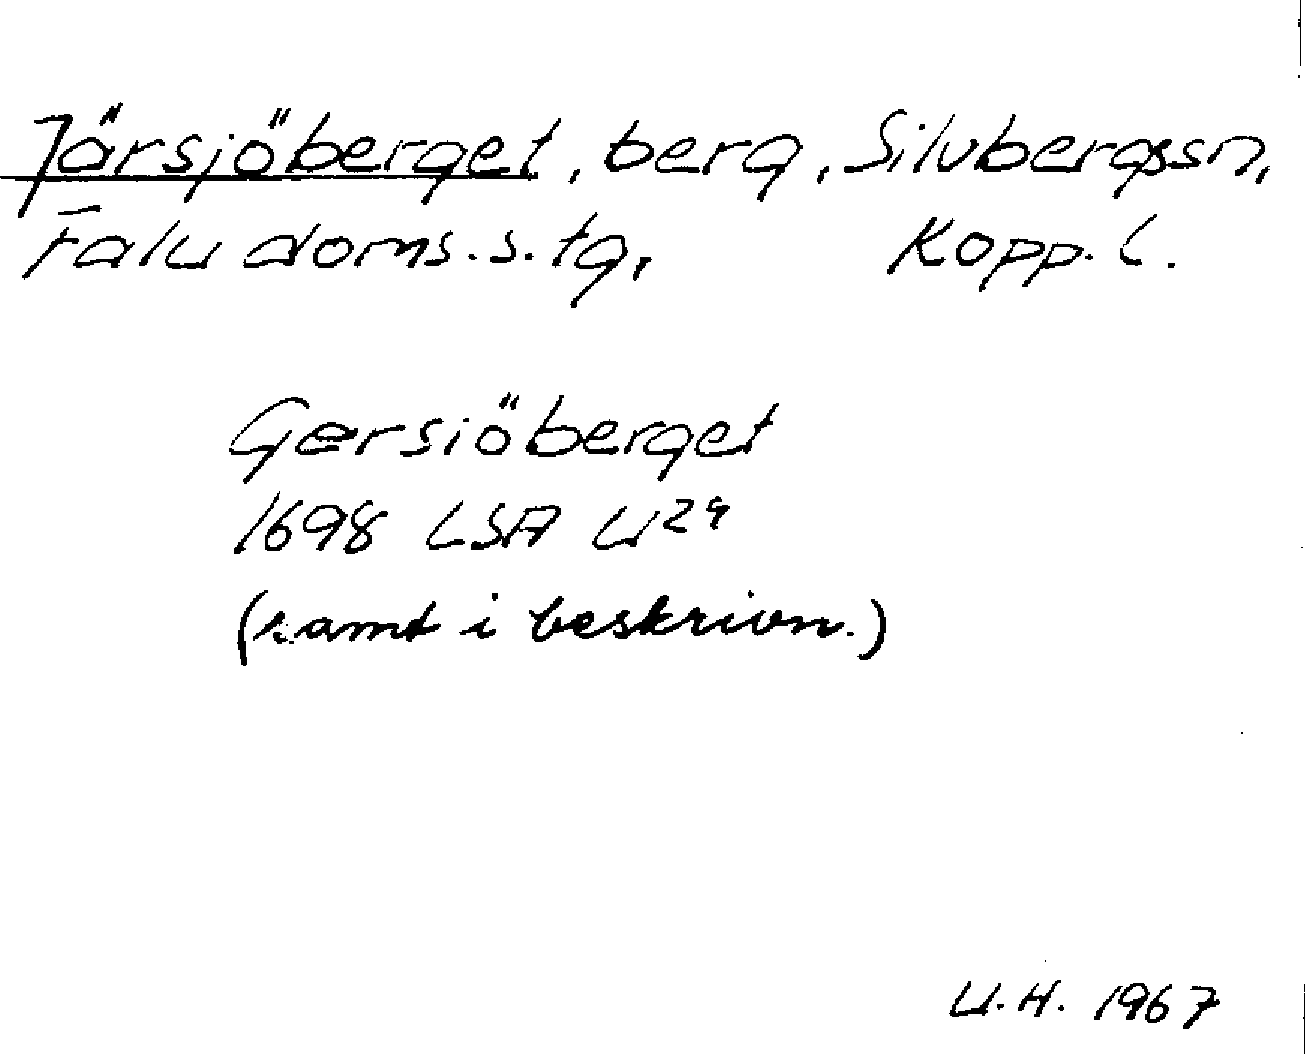 Järsjöberget, berg, Silvbergssn,
Falu doms.s.tg, Kopp. L.
Gersiöberget
1698 LSA U 29
(samt i beskrivn.)
U.H. 1967